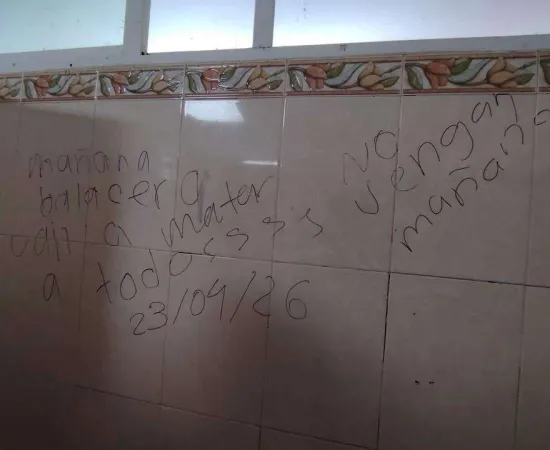 mañana
balacera
van a matar
a todosss
23/04/26
NO
vengan
mañana